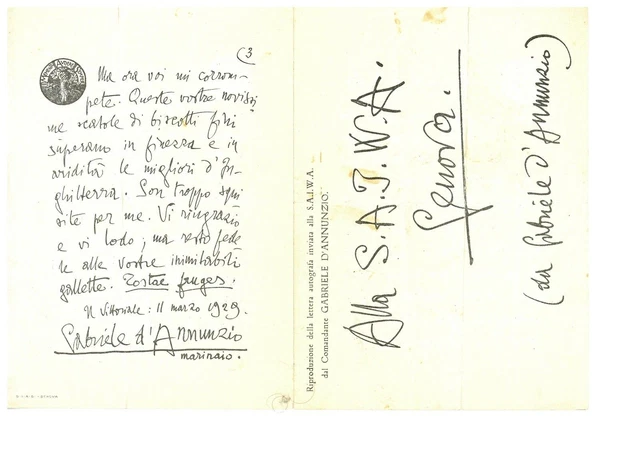 (3
Ma ora voi mi corrom-
pete. Queste vostre novissi
me scatole di biscotti fini
superano in finezza e in
aridità le migliori d'In-
ghilterra. Son troppo squi
site per me. Vi ringrazio
e vi lodo; ma resto fede
le alle vostre inimitabili
gallette. Tostae fruges.
Il Vittoriale: 11 marzo 1929.
Gabriele d'Annunzio
marinaio.
Riproduzione della lettera autografa inviata alla S.A.I.W.A.
dal Comandante GABRIELE D'ANNUNZIO.
Alla S.A.I.W.A.
Genova.
(da Gabriele d'Annunzio)